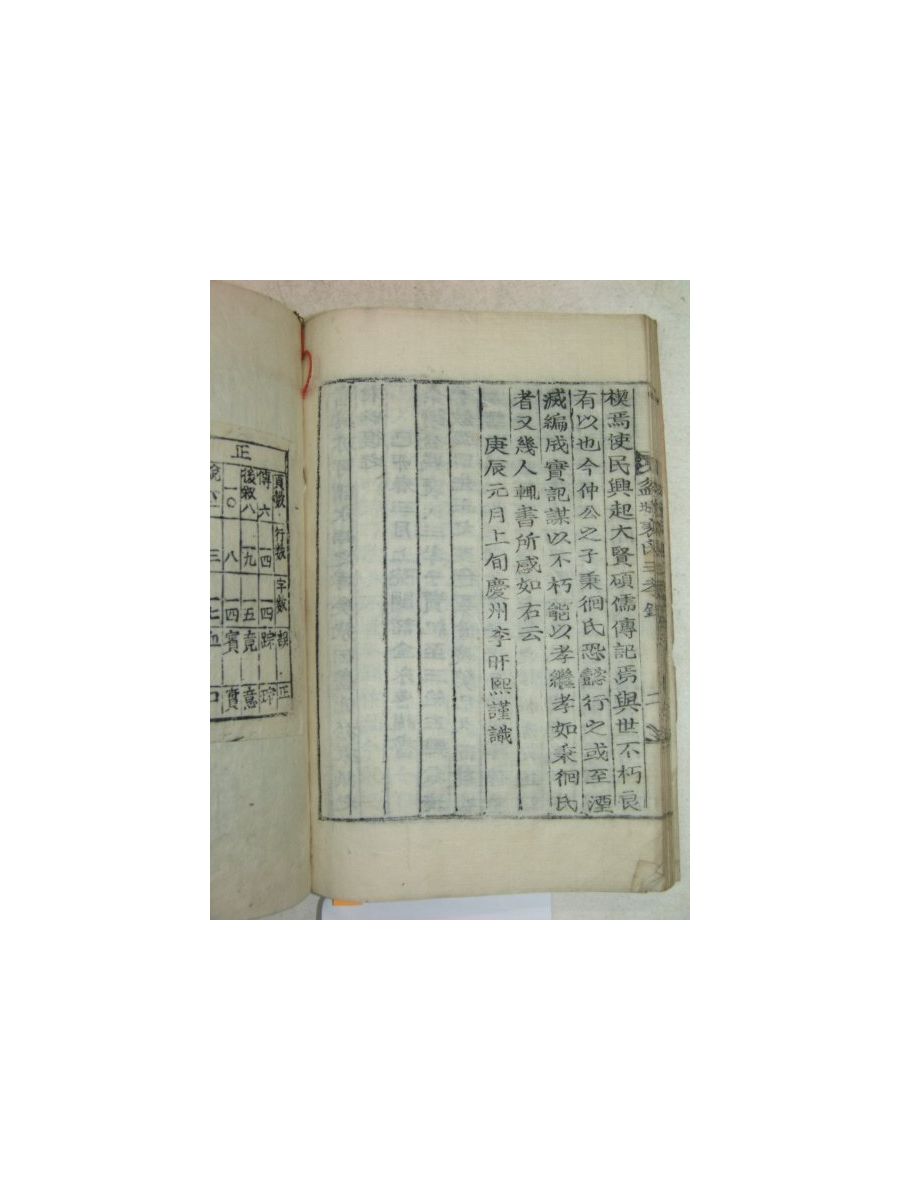 盆城裵氏三孝錄
二
楔焉使民興起大賢碩儒傳記焉與世不朽良
有以也今仲公之子秉徊氏恐懿行之或至湮
滅編成實記謀以不朽能以孝繼孝如秉徊氏
者又幾人輒書所感如右云
庚辰元月上旬慶州李旰熙謹識
正
頁數 行數 字數 誤 正
傳六 一四 一四 踪 琮
後敍八 一九 一五 竟 意
一〇 八 一四 賓 實
三 一七 血